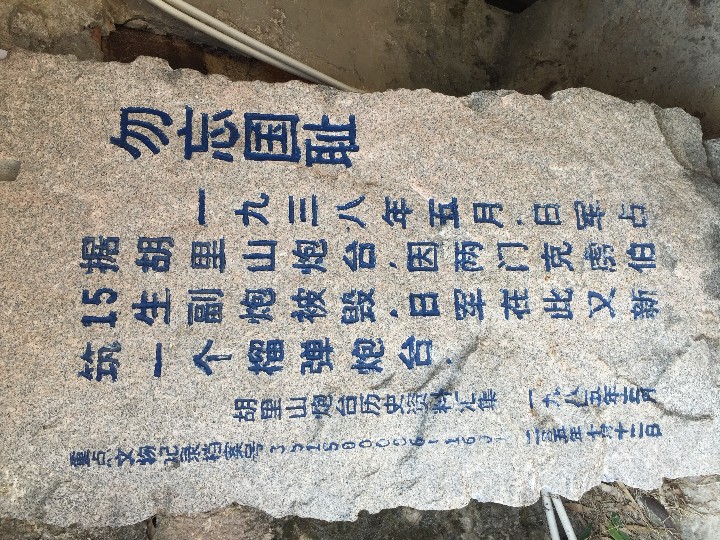 勿忘国耻
一九三八年五月,日军占
据胡里山炮台,因两门克虏伯
15生副炮被毁,日军在此又新
筑一个榴弹炮台.
胡里山炮台历史资料汇集 一九八五年三月
重点文物记录档案号